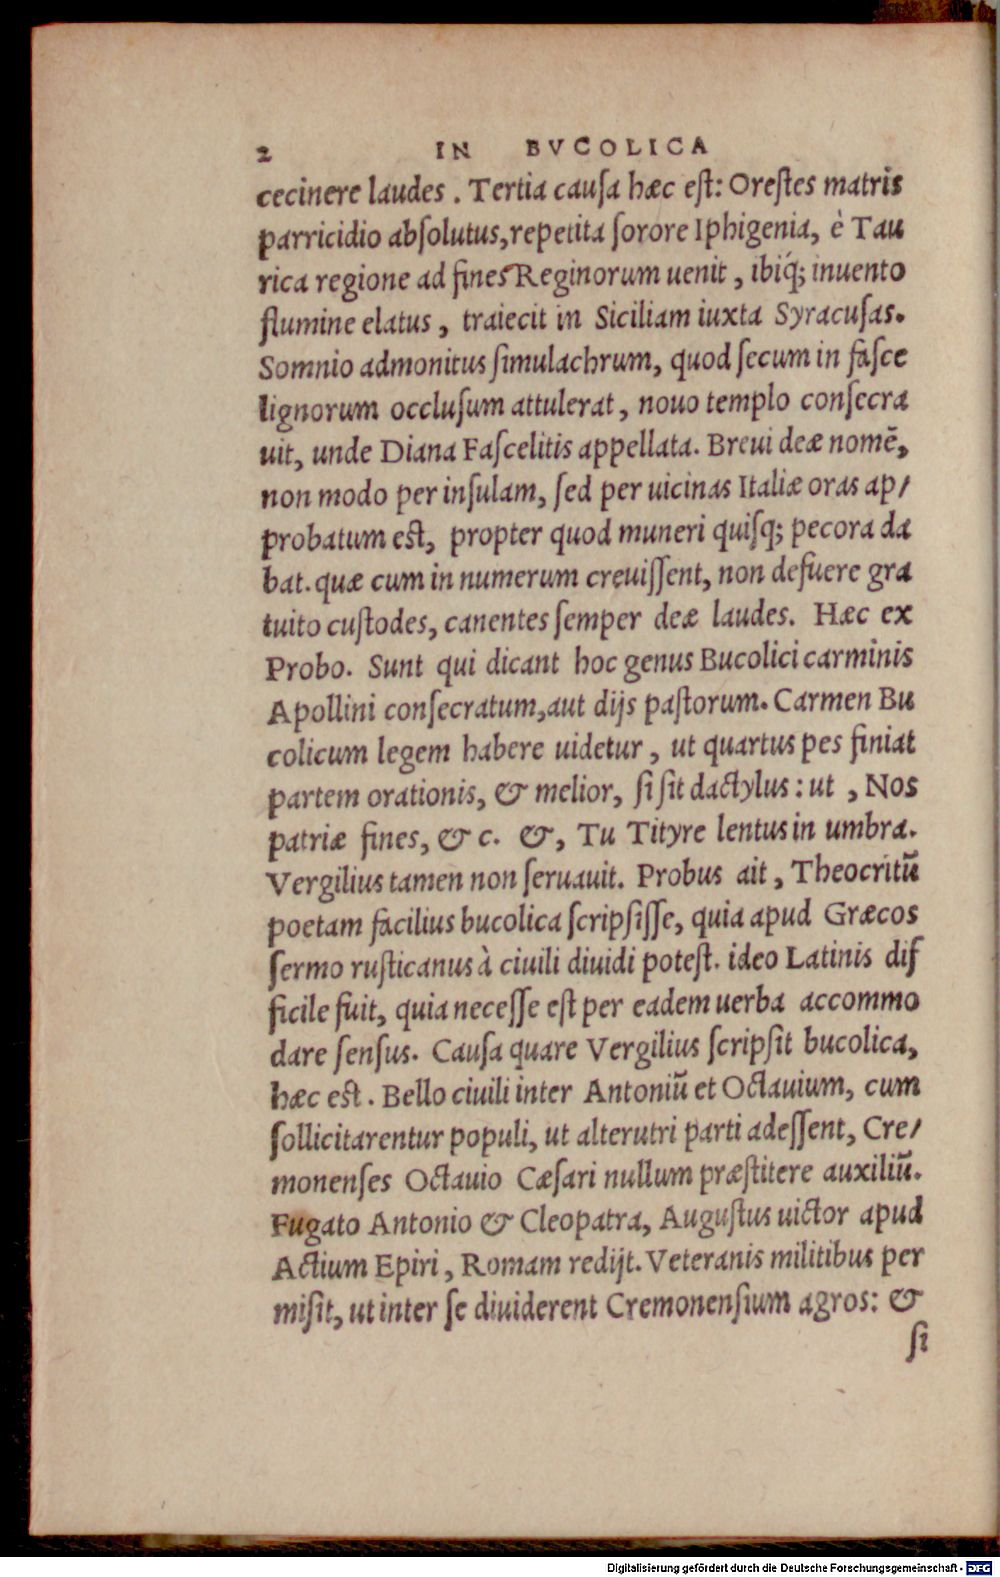 2 IN BVCOLICA
cecinere laudes. Tertia cauſa hæc eſt: Oreſtes matris
parricidio abſolutus, repetita ſorore Iphigenia, è Tau
rica regione ad fines Reginorum uenit, ibiq́; inuento
flumine elatus, traiecit in Siciliam iuxta Syracuſas.
Somnio admonitus ſimulachrum, quod ſecum in faſce
lignorum occluſum attulerat, nouo templo conſecra
uit, unde Diana Faſcelitis appellata. Breui deæ nomē,
non modo per inſulam, ſed per uicinas Italiæ oras ap/
probatum eſt, propter quod muneri quiſq; pecora da
bat. quæ cum in numerum creuiſſent, non defuere gra
tuito cuſtodes, canentes ſemper deæ laudes. Hæc ex
Probo. Sunt qui dicant hoc genus Bucolici carminis
Apollini conſecratum, aut dijs paſtorum. Carmen Bu
colicum legem habere uidetur, ut quartus pes finiat
partem orationis, & melior, ſi ſit dactylus: ut, Nos
patriæ fines, & c. &, Tu Tityre lentus in umbra.
Vergilius tamen non ſeruauit. Probus ait, Theocritū
poetam facilius bucolica ſcripſiſſe, quia apud Græcos
ſermo ruſticanus à ciuili diuidi poteſt. ideo Latinis dif
ficile fuit, quia neceſſe eſt per eadem uerba accommo
dare ſenſus. Cauſa quare Vergilius ſcripſit bucolica,
hæc eſt. Bello ciuili inter Antoniū et Octauium, cum
ſollicitarentur populi, ut alterutri parti adeſſent, Cre/
monenſes Octauio Cæſari nullum præſtitere auxiliū.
Fugato Antonio & Cleopatra, Auguſtus uictor apud
Actium Epiri, Romam redijt. Veteranis militibus per
miſit, ut inter ſe diuiderent Cremonenſium agros: &
ſi
Digitalisierung gefördert durch die Deutsche Forschungsgemeinschaft - DFG